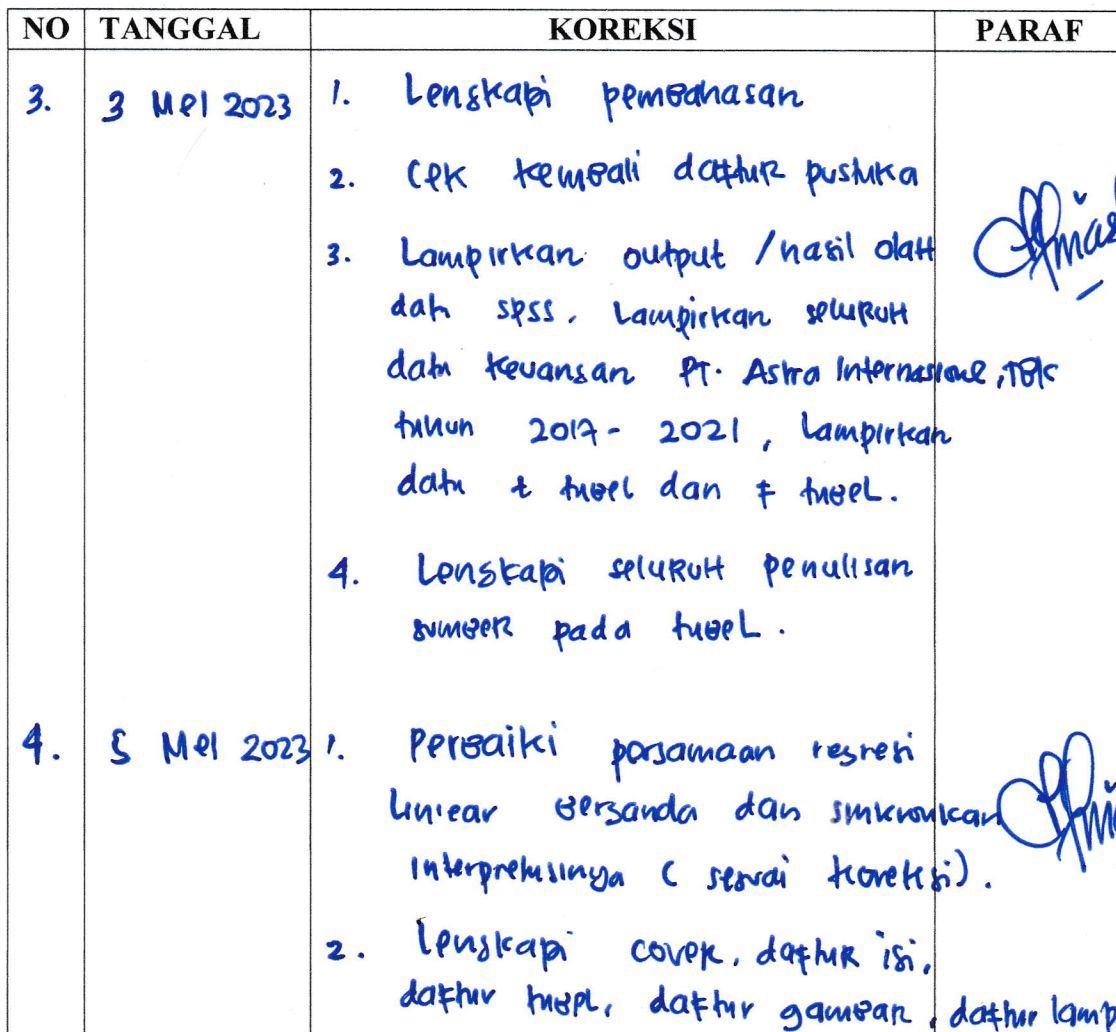 NO TANGGAL KOREKSI PARAF
3. 3 Mei 2023 1. Lengkapi pembahasan
2. Cek kembali daftar pustaka
3. Lampirkan output / hasil olah
data SPSS. Lampirkan seluruh
data keuangan PT. Astra Internasional, Tbk
tahun 2017 - 2021, Lampirkan
data t tabel dan F tabel.
4. Lengkapi seluruh penulisan
sumber pada tabel.
4. 5 Mei 2023 1. Perbaiki persamaan regresi
linear berganda dan sinkronkan
interpretasinya ( sesuai koreksi ).
2. Lengkapi cover, daftar isi,
daftar tabel, daftar gambar, daftar lamp